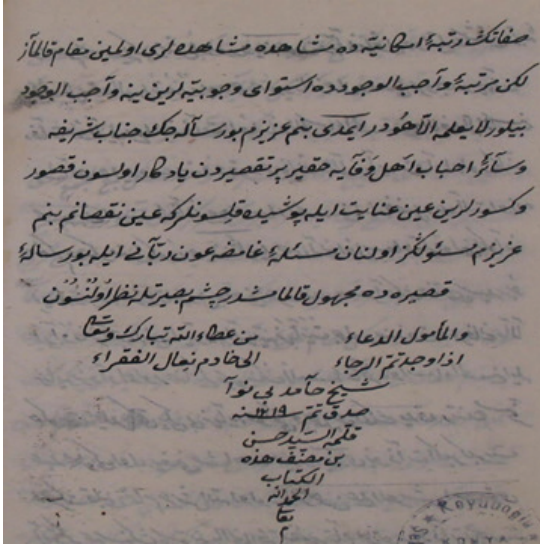 صفاتك رتبۀ امكانيّه ده مشاهده مشاهده لرى اولمين مقام قالماز
لكن مرتبۀ وآجب الوجودده استواى وجوبيّه لرين ينه وآجب الوجود
بيلور لا يعلمه الّا هُو در ايمدى بنم عزيزم بو رساله جك جناب شريفه
وسآئر احباب اهل وَفَايه حقير پر تقصيردن يادكار اولسون قصور
وكسورلرين عين عنايت ايله پوشيده قلسونلركه عين نقصانم بنم
عزيزم مسئولكز اولنان مسئلۀ غامضه عون ربّآنى ايله بو رسالۀ
قصيره ده مجهول قالمامشدر چشم بصيرتله نظر اُولُنسُون
والمأمول الدعاء من عطاء اللّه تبارك وتعالى
اذا وجد تمّ الرجاء الى خادم نعال الفقراء
شيخ حآمد بى نوآ
صدق تم ١٢١٩ سنه
قلمى السيد حسن
بن مصنّف هذه
الكتاب
الحمد لله
تعا
م
Koyunoğlu
KONYA